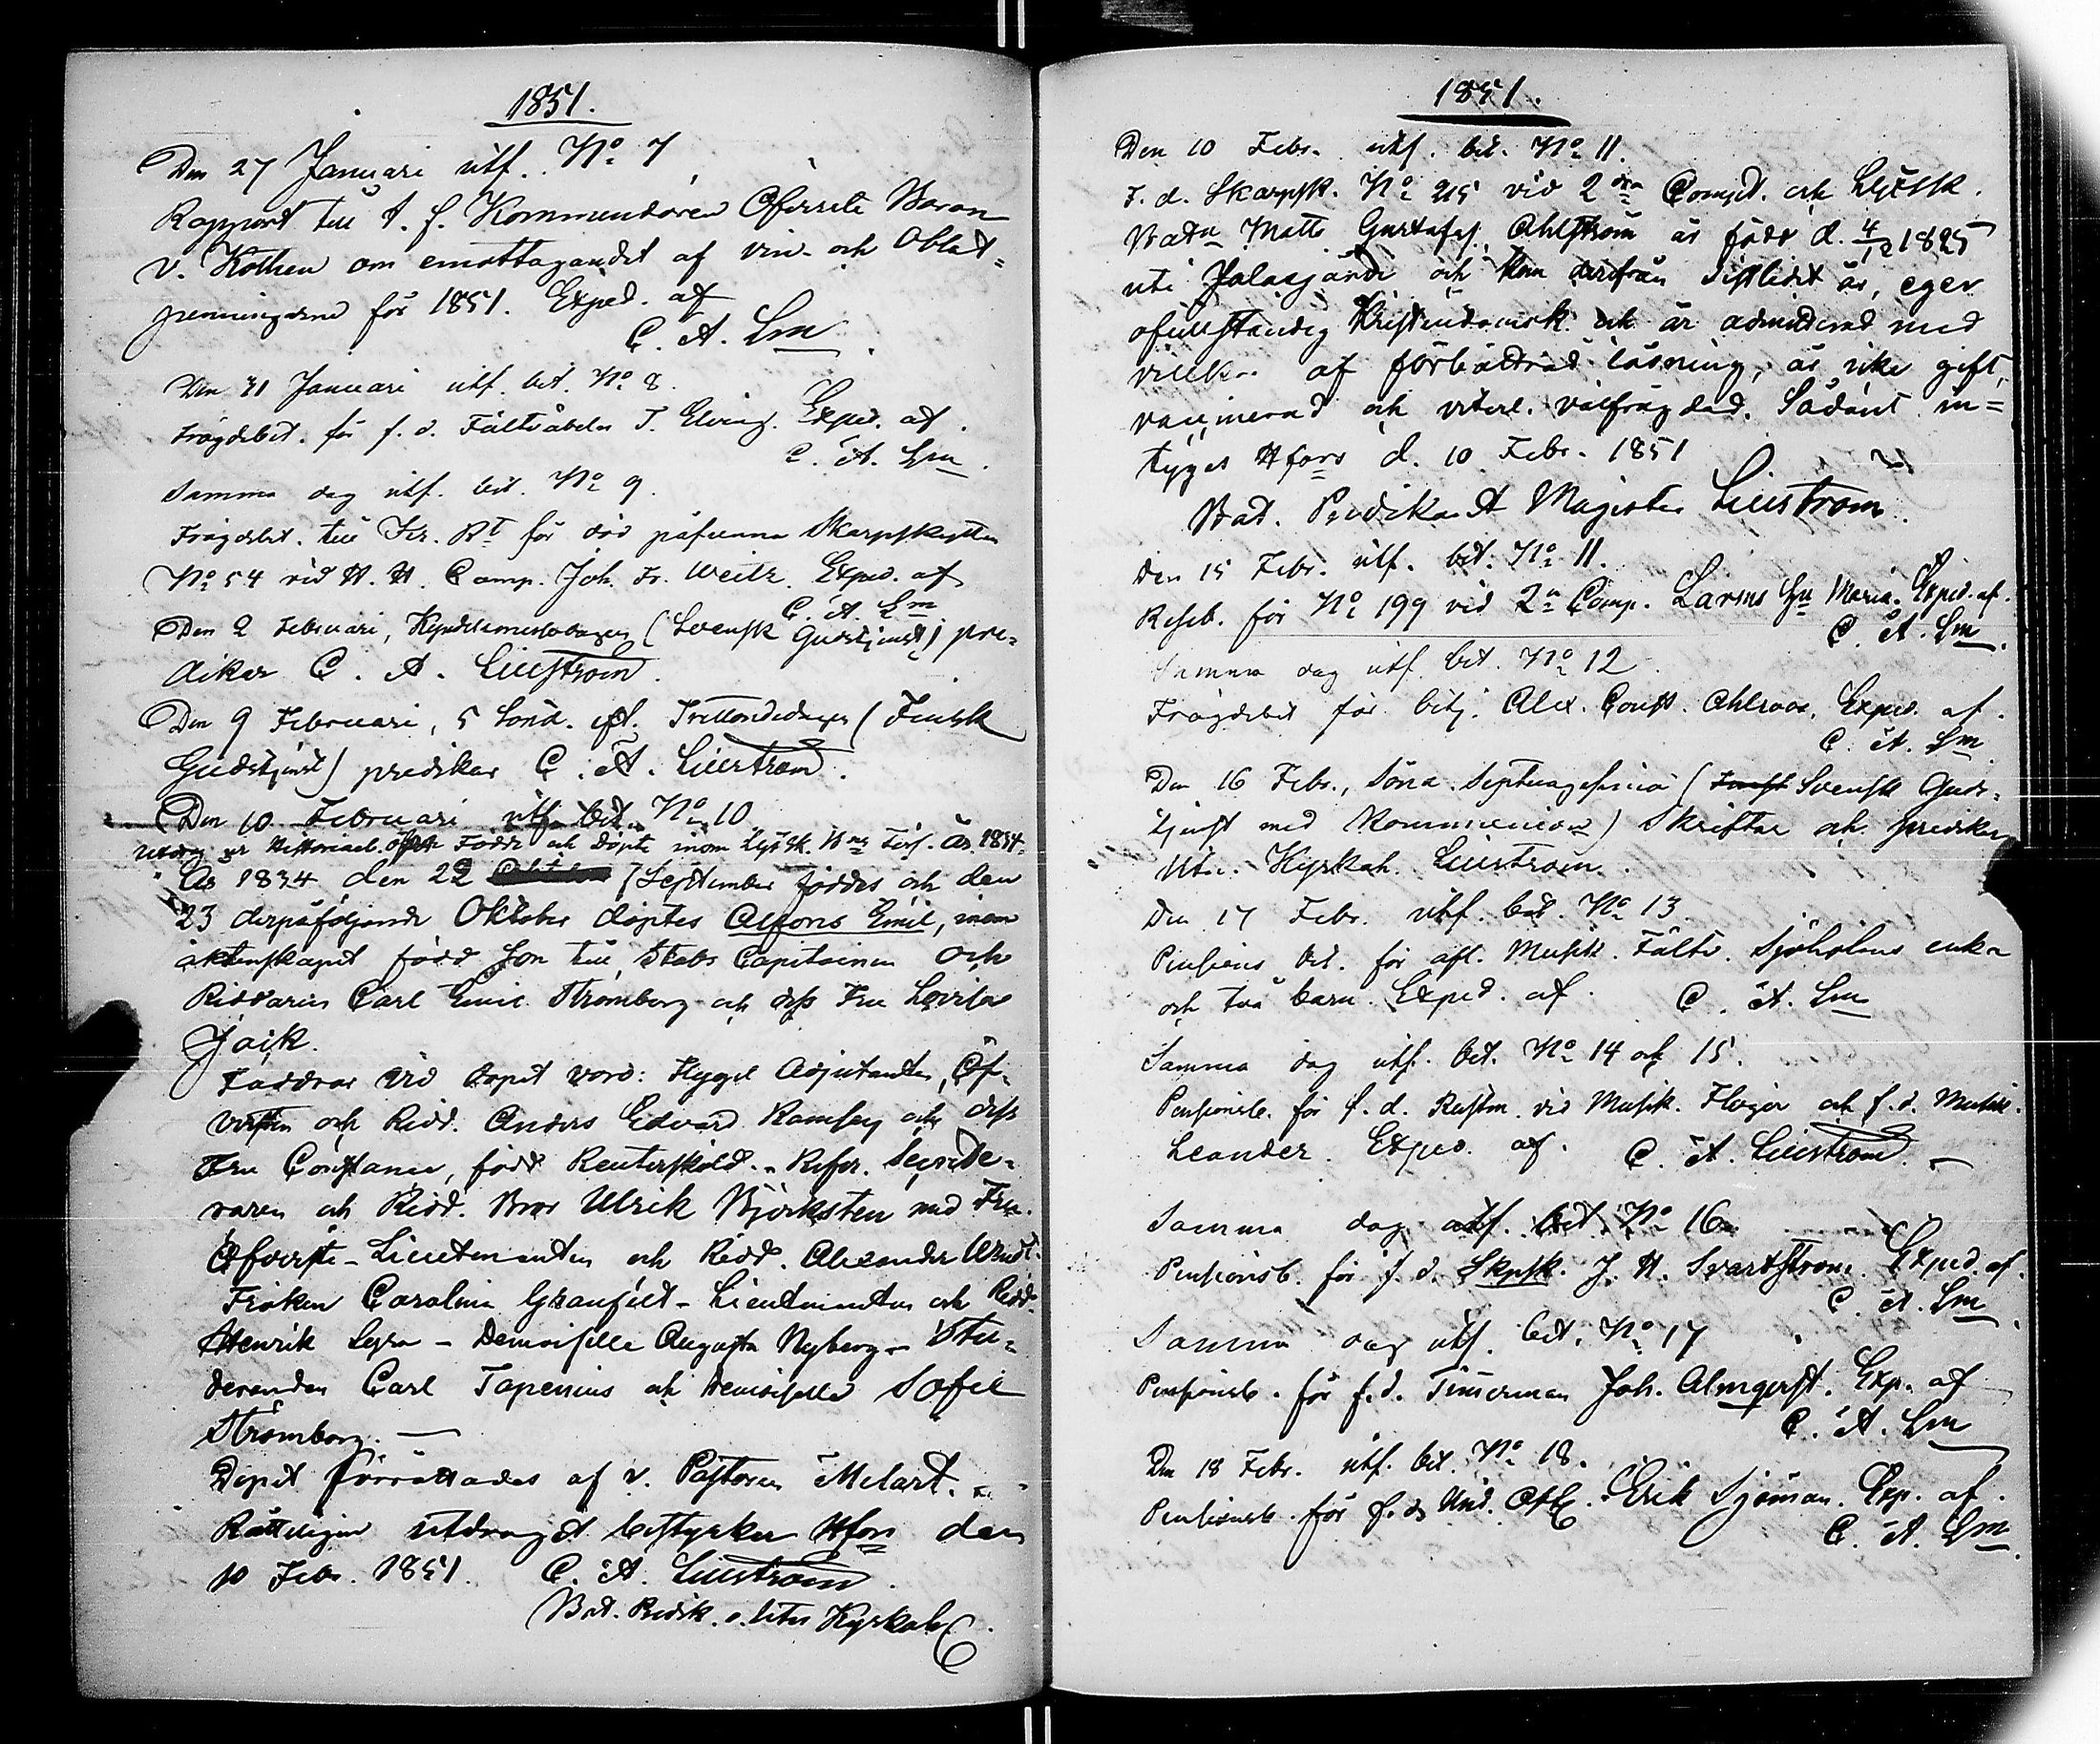 1851.
Den 27 Januari utf. No 7
Rapport till t. f. Kommendören Öfverste Baron
v. Kothen om emottagandet af vin- och Oblat-
penningarne för 1851. Exped. af
C. A. Lm
Den 31 Januari utf. bet. No 8.
Frägdebet. för f. d. Fältväbeln J. Elving. Exped. af.
C. A. Lm.
Samma dag utf. bet. No 9.
Frägdebet. till Kr. Rt för död påfunna Skarpskytten
No 54 vid H. H. Comp. Joh. Fr. Weitz. Exped. af
C. A. Lm
Den 2 Februari, Kyndelsmessodagen (Svensk Gudstjenst) pre-
dikar C. A. Liliström.
Den 9 Februari, 5 Sönd. eft. Trettondedagen (Finsk
Gudstjenst) predikar C. A. Liliström.
Den 10 Februari utf. bet. No 10
Utdrag ur Historieb. öfver Födde och Döpte inom Lifsk. Bns Förs. År 1834.
År 1834 den 22 September föddes och den
23 derpåföljande Oktober döptes Alfons Emil, inom
äktenskapet född Son till Stabs Capitainen och
Riddaren Carl Emil Stromborg och dess Fru Lovisa
Jaik.
Faddrar vid dopet voro: Flygel Adjutanten, Öf-
versten och Ridd. Anders Edvard Ramsay och dess
Fru Constance, född Reuterskiöld. - Refer. Secrete-
raren och Ridd. Bror Ulrik Björksten med Fru.
Öfverste-Lieutenanten och Ridd. Alexander Wendt.
Fröken Carolina Granfelt - Lieutenanten och Ridd.
Henrik - Demoiselle Augusta Nyberg - Stu-
deranden Carl Tapenius och Demoiselle Sofie
Stromborg. -
Dopet förrättades af v. Pastoren Melart. -
Rätteligen utdraget bestyrker Hfors den
10 Febr. 1851. C. A. Liliström.
Bat. Predik. o. Kyrkoh.
1851.
Den 10 Febr. utf. bet. No 11.
F. d. Skarpsk. No 215 vid 2dra Comp. och Lifsk.
Batn Matts Gustafss. Ahlström är född d. 4/12 1825
uti Jalasjärvi och kom derifrån sistlidet år, eger
ofullständig Kristendomsk. och är admitterad med
villkor af förbättrad läsning, är icke gift,
vaccinerad och veterl. välfrägdad. Sådant in-
tygas Hfors d. 10 Febr. 1851
Bat. Predikant Magister Liliström.
Den 15 Febr. utf. bet. No 11.
Reseb. för No 199 vid 2a Comp. Larsns Hu Maria. Exped. af.
C. A. Lm.
Samma dag utf. bet. No 12
Frägdebet för betj. Alex. Const. Ahlroos. Exped. af.
C. A. Lm
Den 16 Febr., Sönd. Septuagesima (Finsk Svensk Guds-
tjenst med Kommunion) Skriftar och predikar
Kyrkoh. Liliström.
Den 17 Febr. utf. bet. No 13.
Pensions bet. för afl. Musik. Fältv. Sjöholms enka
och två barn. Exped. af. C. A. Lm
Samma dag utf. bet. No 14 och 15.
Pensionsb. för f. d. Rustm. vid Musik. Flöjer och f. d. Musik.
Leander. Exped. af. C. A. Liliström. -
Samma dag utf. bet. No 16.
Pensionsb. för f. d. Skpsk. J. H. Svartström. Exped. af.
C. A. Lm.
Samma dag utf. bet. No 17
Pensionsb. för f. d. Timerman Joh. Almqvist. Exp. af
C. A. Lm
Den 18 Febr. utf. bet. No 18.
Pensionsb. för f. d. Und. Off. Erik Sjöman. Exp. af.
C. A. Lm.